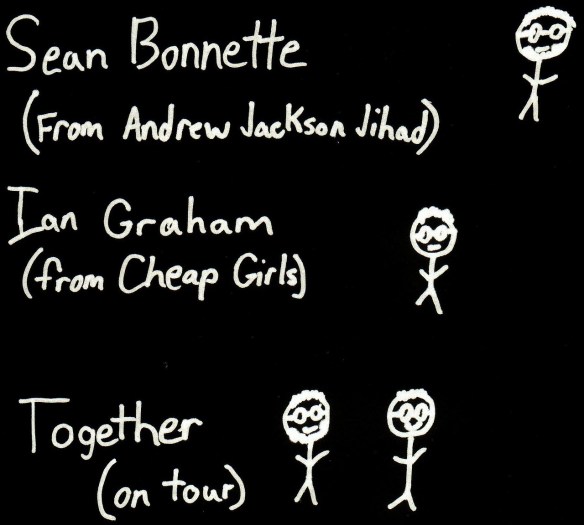 Sean Bonnette
(From Andrew Jackson Jihad)
Ian Graham
(from Cheap Girls)
Together
(on tour)